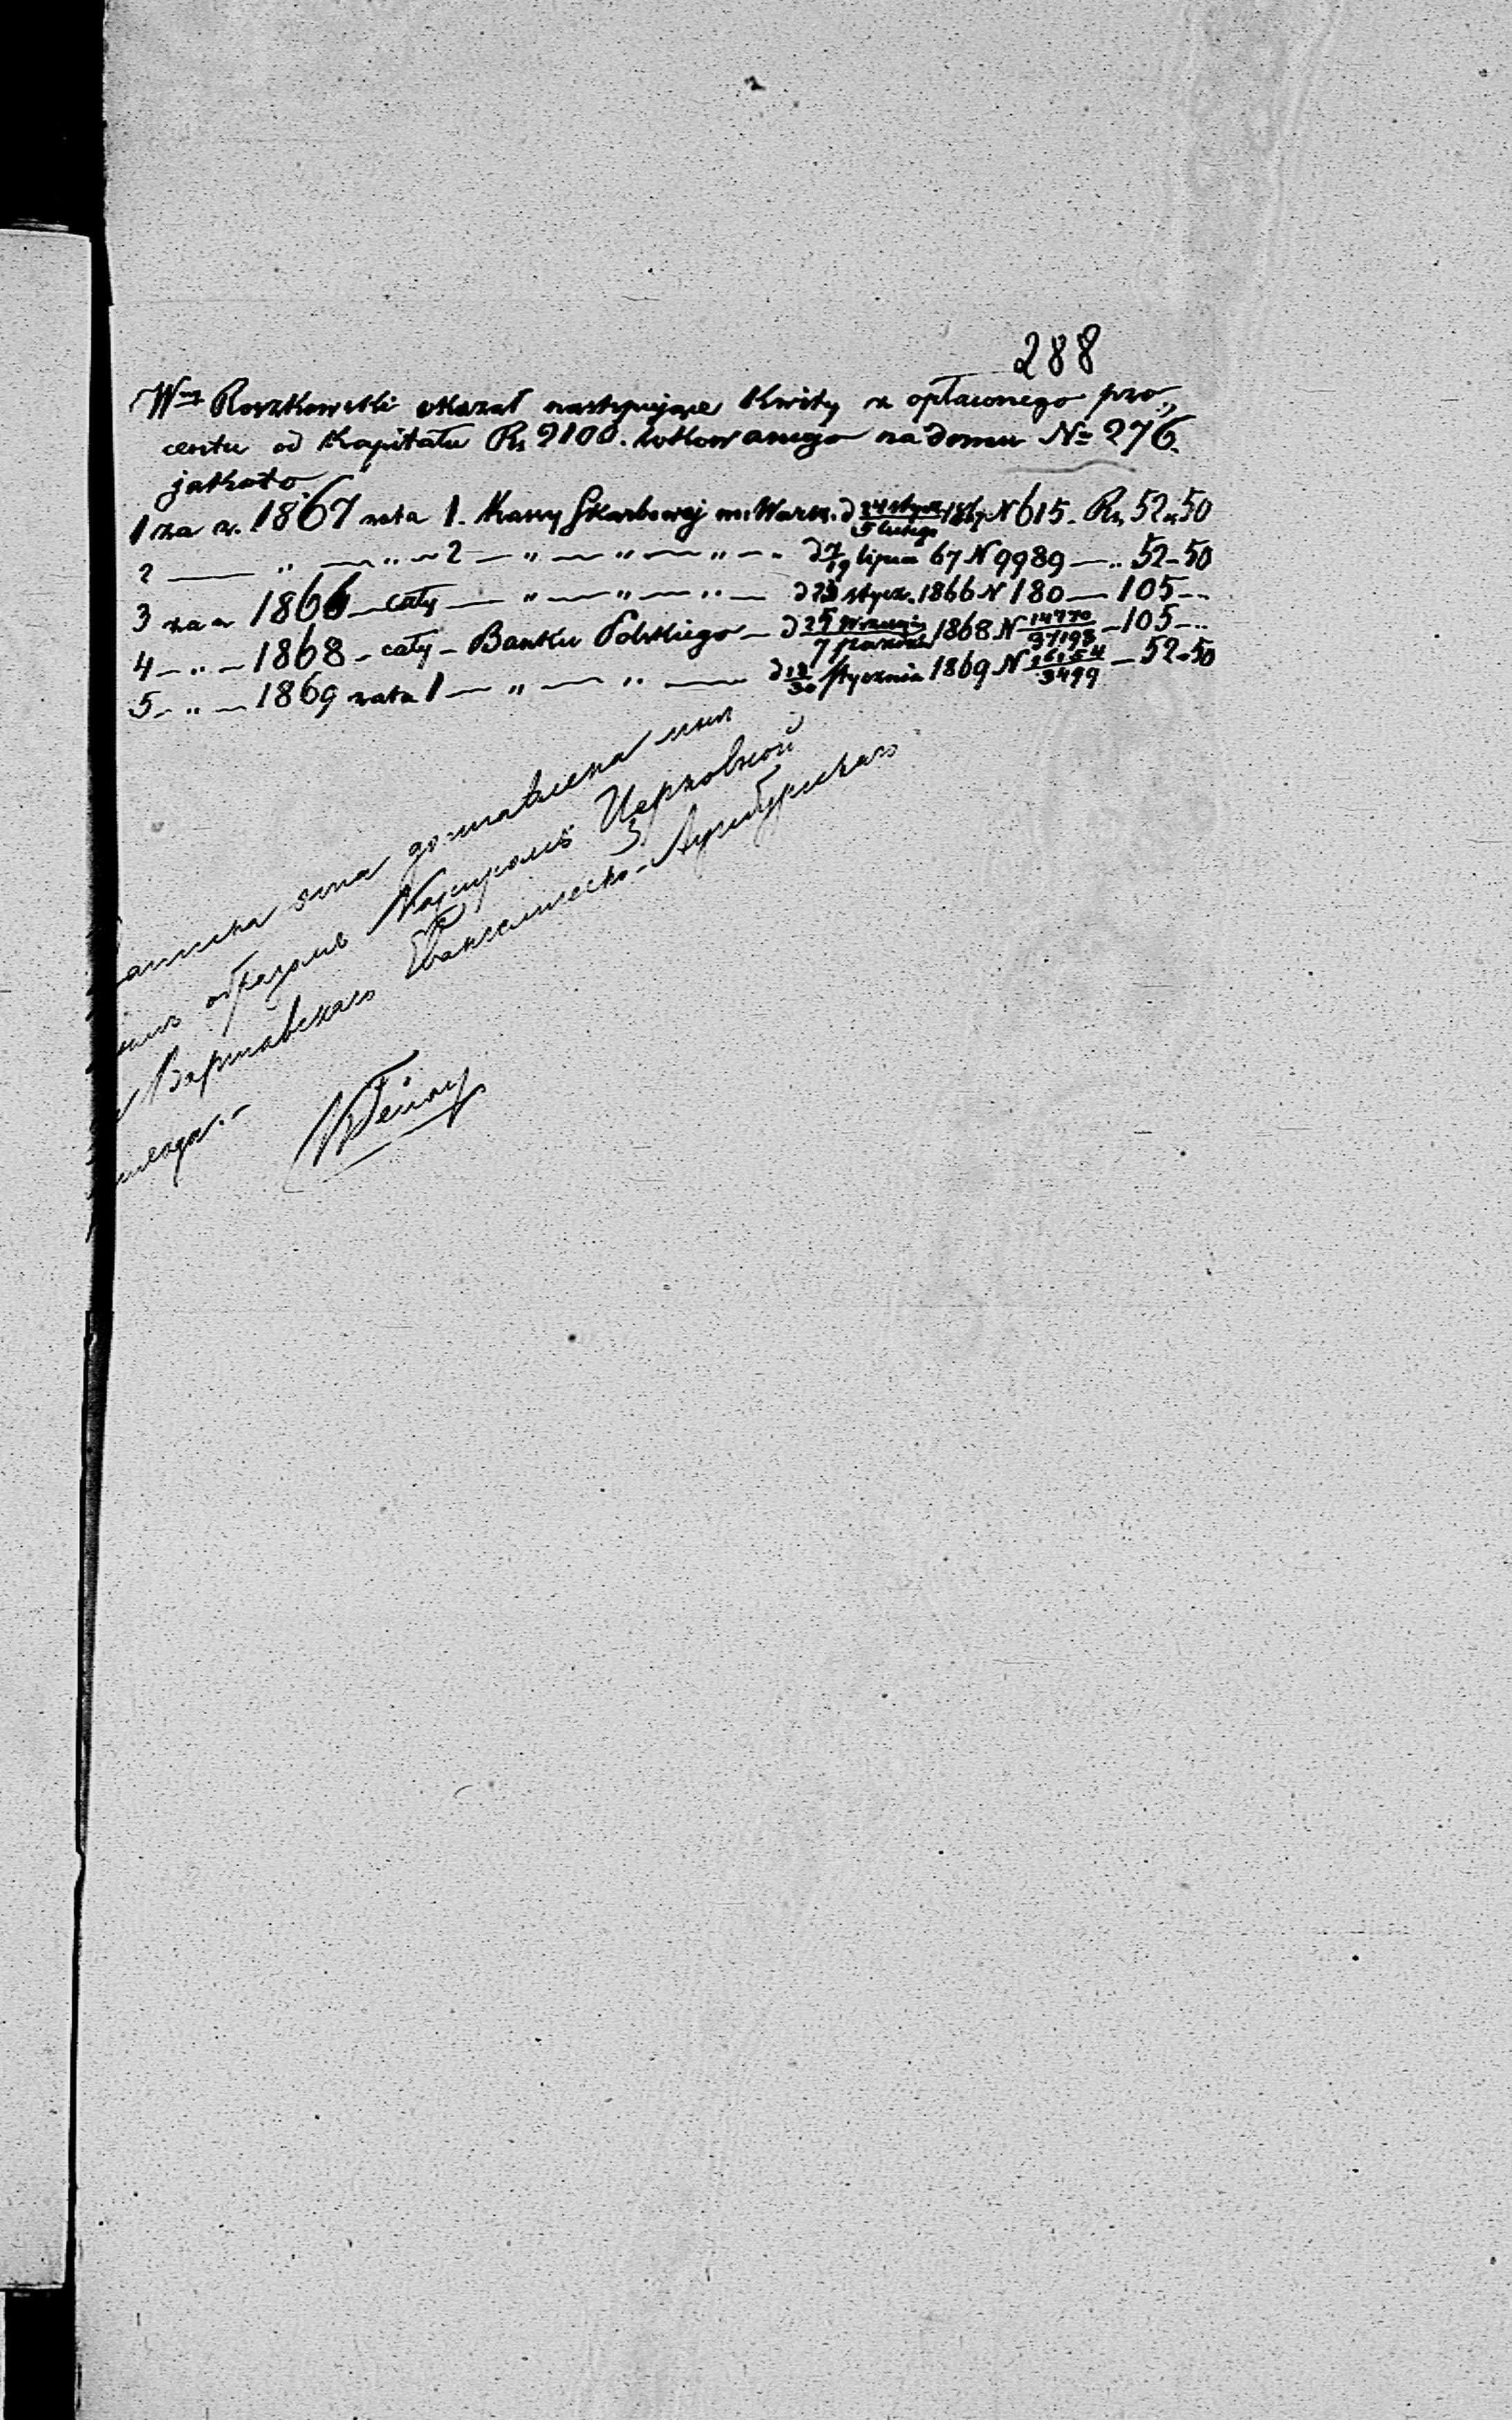 288
Wny Roszkowski okazał następujące Kwity z opłaconego pro„
centu od Kapitału Rs 2100. lokowanego na domu No 276.
jakoto
1 za r. 1867 rata 1. Kassy Skarbowej m. Warsz. d 24 stycz./5 lutego 1867 N 615. Rs 52.50
2 — „ — „ — 2 — „ — „ — „ — d 7/19 lipca 67 N 9989 — „ 52-50
3 za r 1866 — cały — „ — „ — „ — d 23 stycz. 1866 N 180 — 105 - „
4 — „ — 1868 - cały - Banku Polskiego — d 25 Września/7 paźdz 1868 N 14770/37193 — 105 - „
5 - „ — 1869 rata 1 — „ — „ — d 18/30 stycznia 1869 N 26154/3499 — 52-50
записка эта доставлена
образомъ Церковной
Варшавскаго Евангелическо-Аугсбурскаго